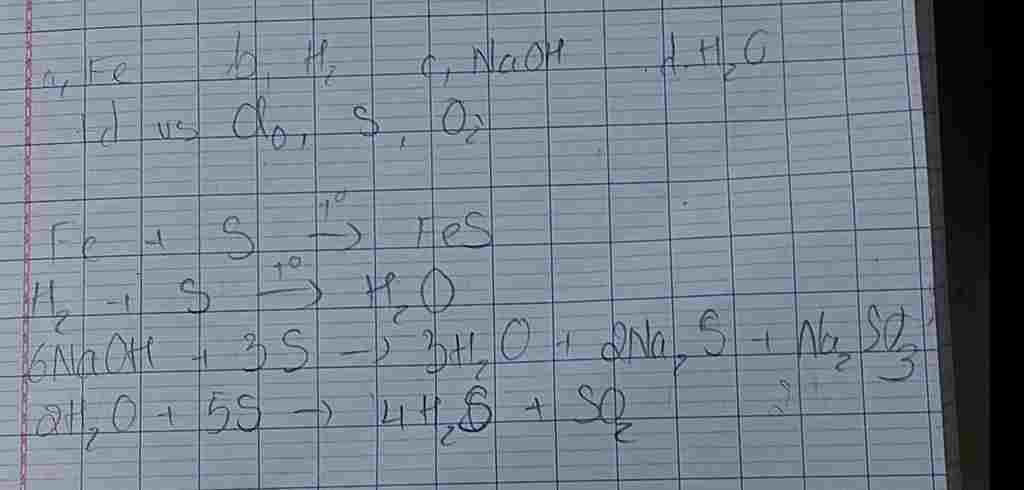 a, Fe b, H₂ c, NaOH d. H₂O
td vs Cl₂, S, O₂
Fe + S →t° FeS
H₂ + S →t° H₂O
6NaOH + 3S → 3H₂O + 2Na₂S + Na₂SO₃
2H₂O + 5S → 4H₂S + SO₂